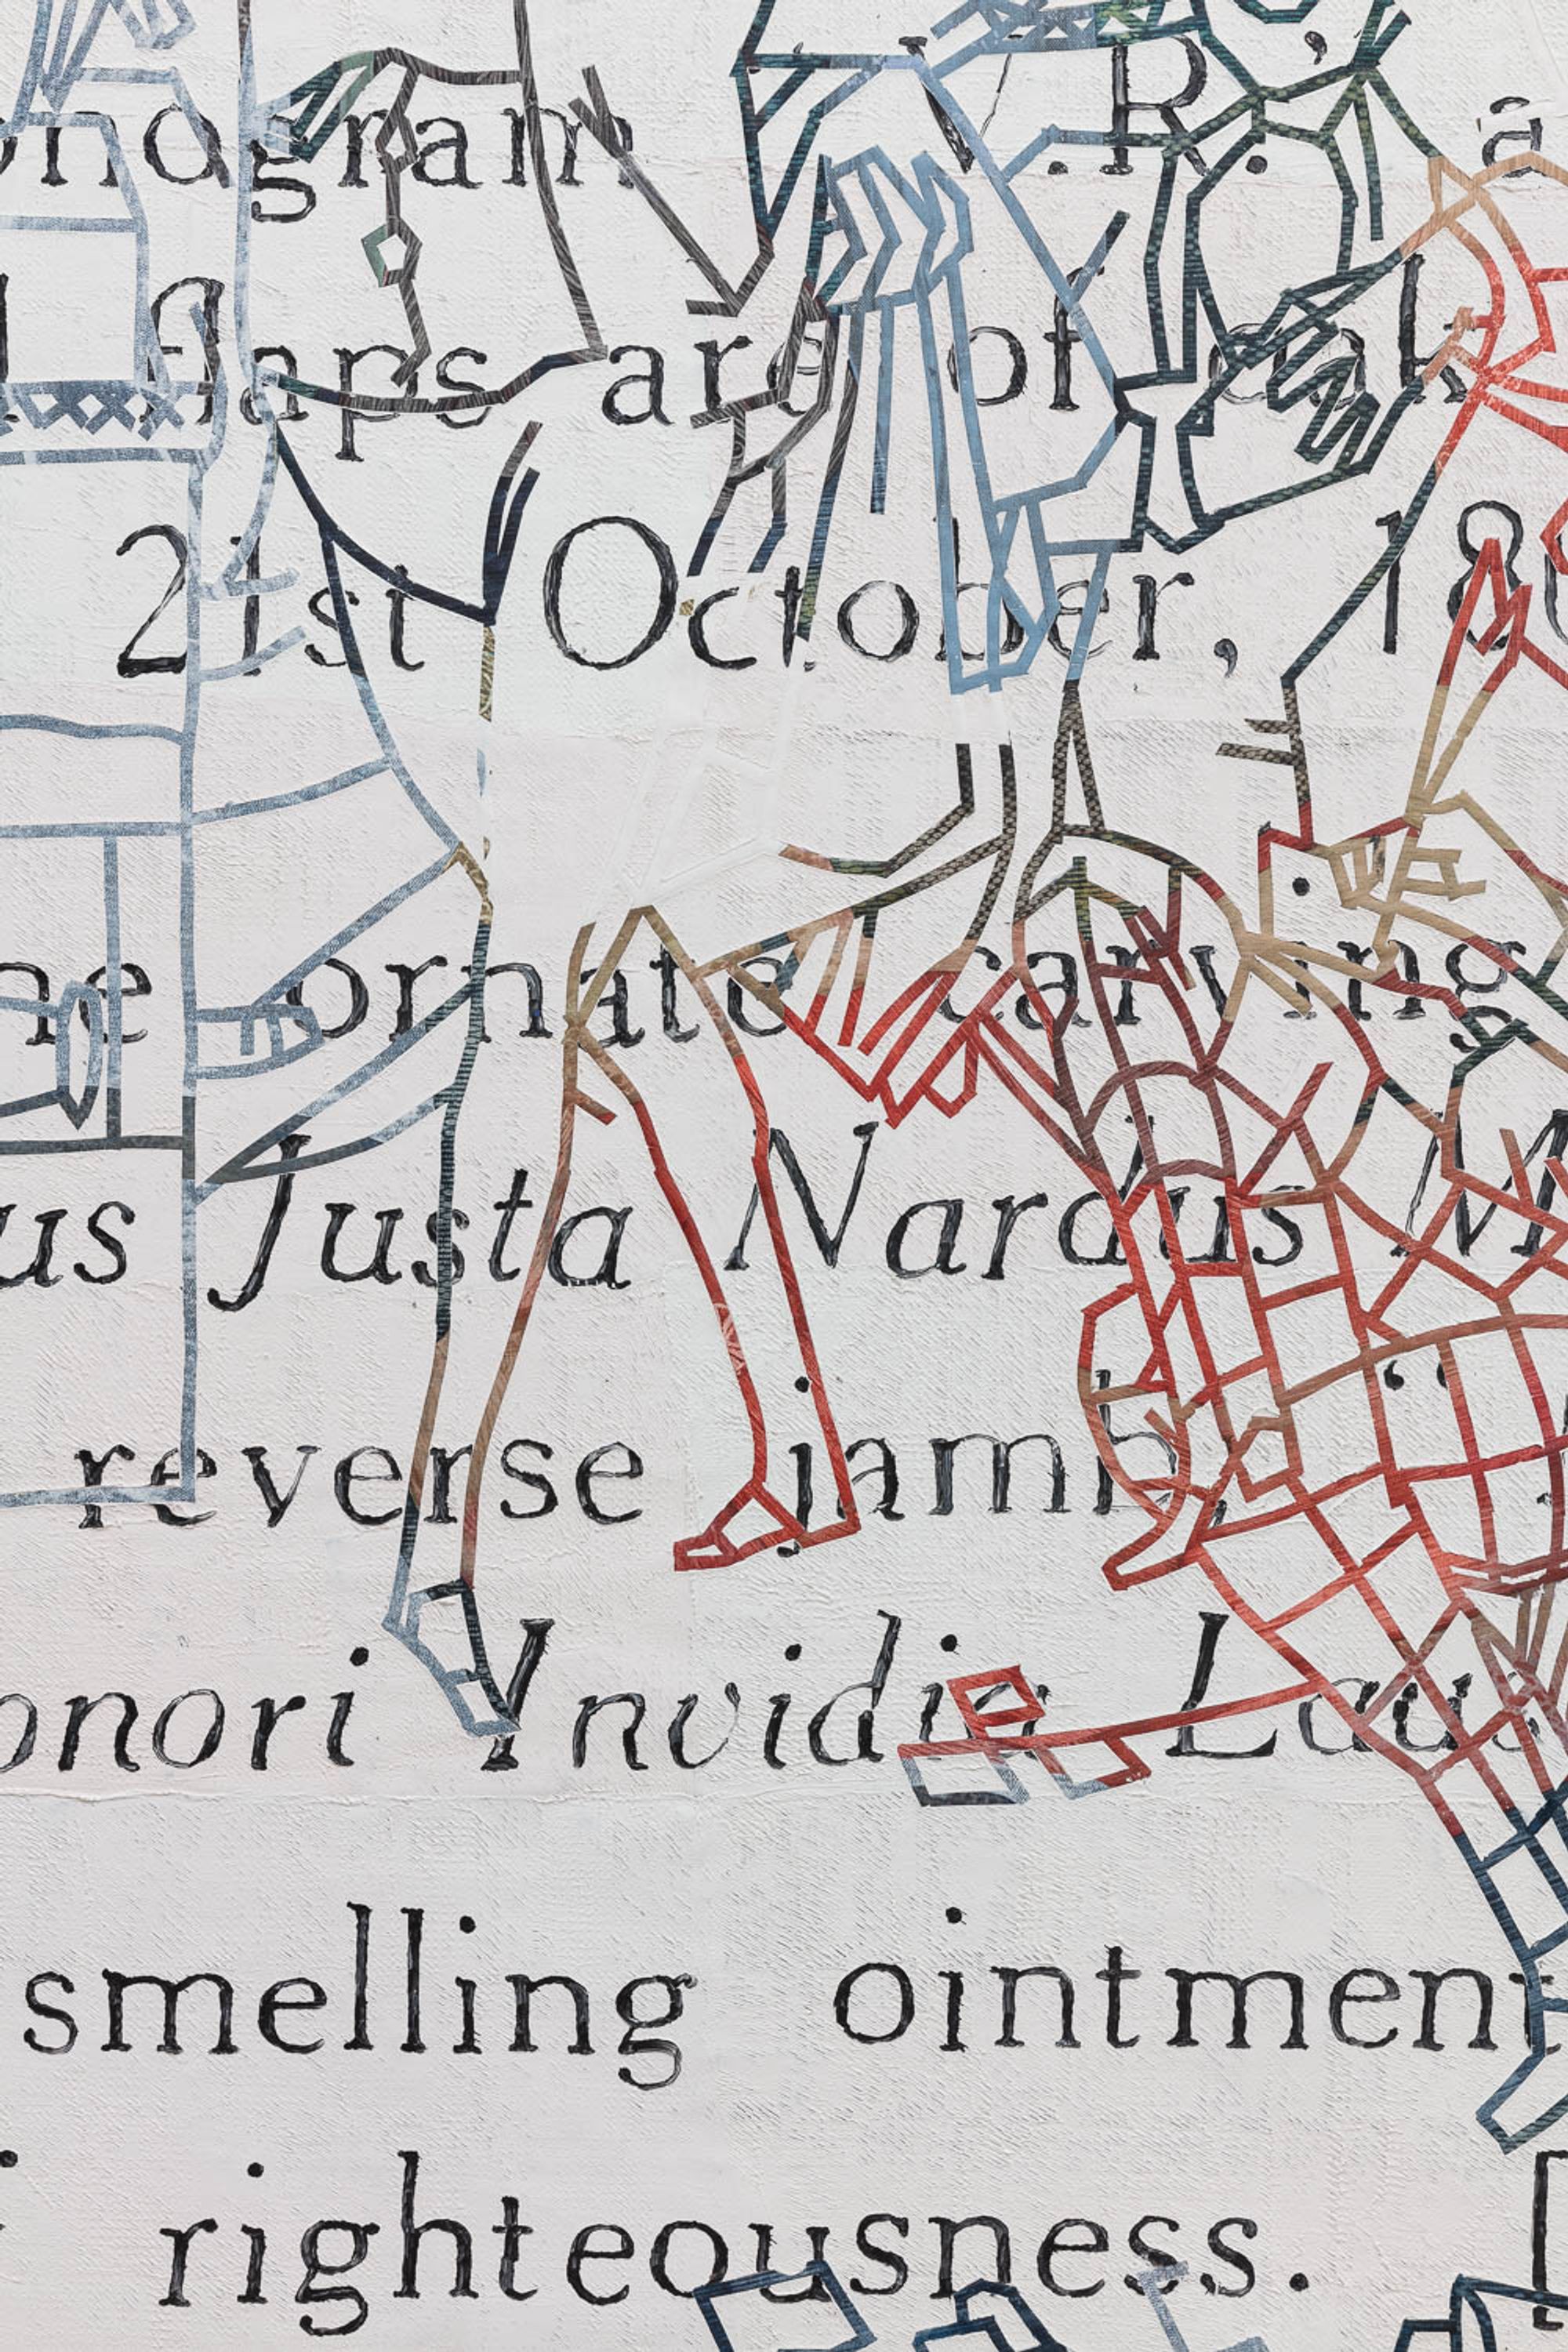 onogram V.R., a
flaps are of oak
21st October, 18
ne ornate carving
us Justa Nardus M
reverse jamb, “
onori Invidia Laus
smelling ointment
righteousness. [